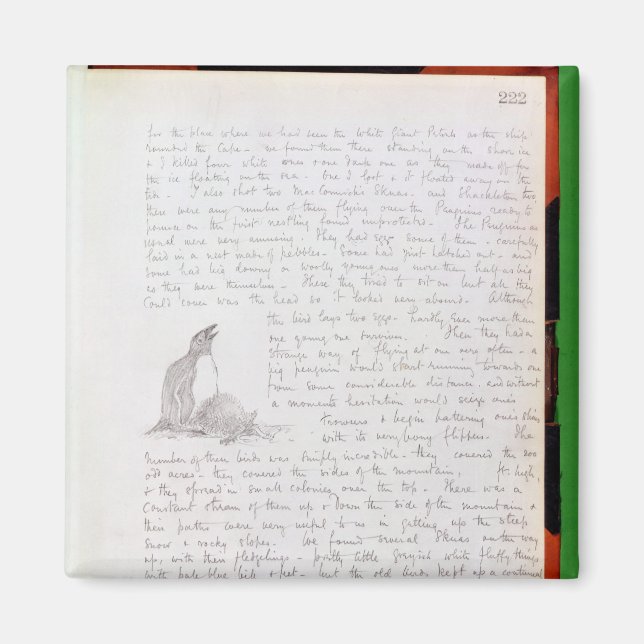 222
for the place where we had seen the White Giant Petrels as the ship
rounded the Cape - we found them there standing on the shore ice
& I killed four white ones & one dark one as they made off for
the ice floating on the sea - One I lost & it floated away on the
tide. I also shot two MacCormick's Skuas. and Shackleton two,
there were any number of them flying over the Penguins ready to
pounce on the first nestling found unprotected. The Penguins as
usual were very amusing. They had eggs some of them - carefully
laid in a nest made of pebbles - Some had just hatched out - and
some had big downy or woolly young ones more than half as big
as they were themselves - These they tried to sit on but all they
could cover was the head so it looked very absurd. Although
the bird lays two eggs - hardly ever more than
one young one survives. Then they had a
strange way of flying at one very often - a
big penguin would start running towards one
from some considerable distance, and without
a moment's hesitation would seize one's
trowsers & begin battering one's shins
with its very bony flippers. The
number of these birds was simply incredible - they covered the 200
odd acres - they covered the sides of the mountain, ft. high,
& they spread in small colonies over the top - There was a
constant stream of them up & down the side of the mountain &
their paths were very useful to us in getting up the steep
snow & rocky slopes. We found several Skuas on the way
up, with their fledgelings - pretty little greyish white fluffy things
with pale blue bill & feet - but the old birds kept up a continual